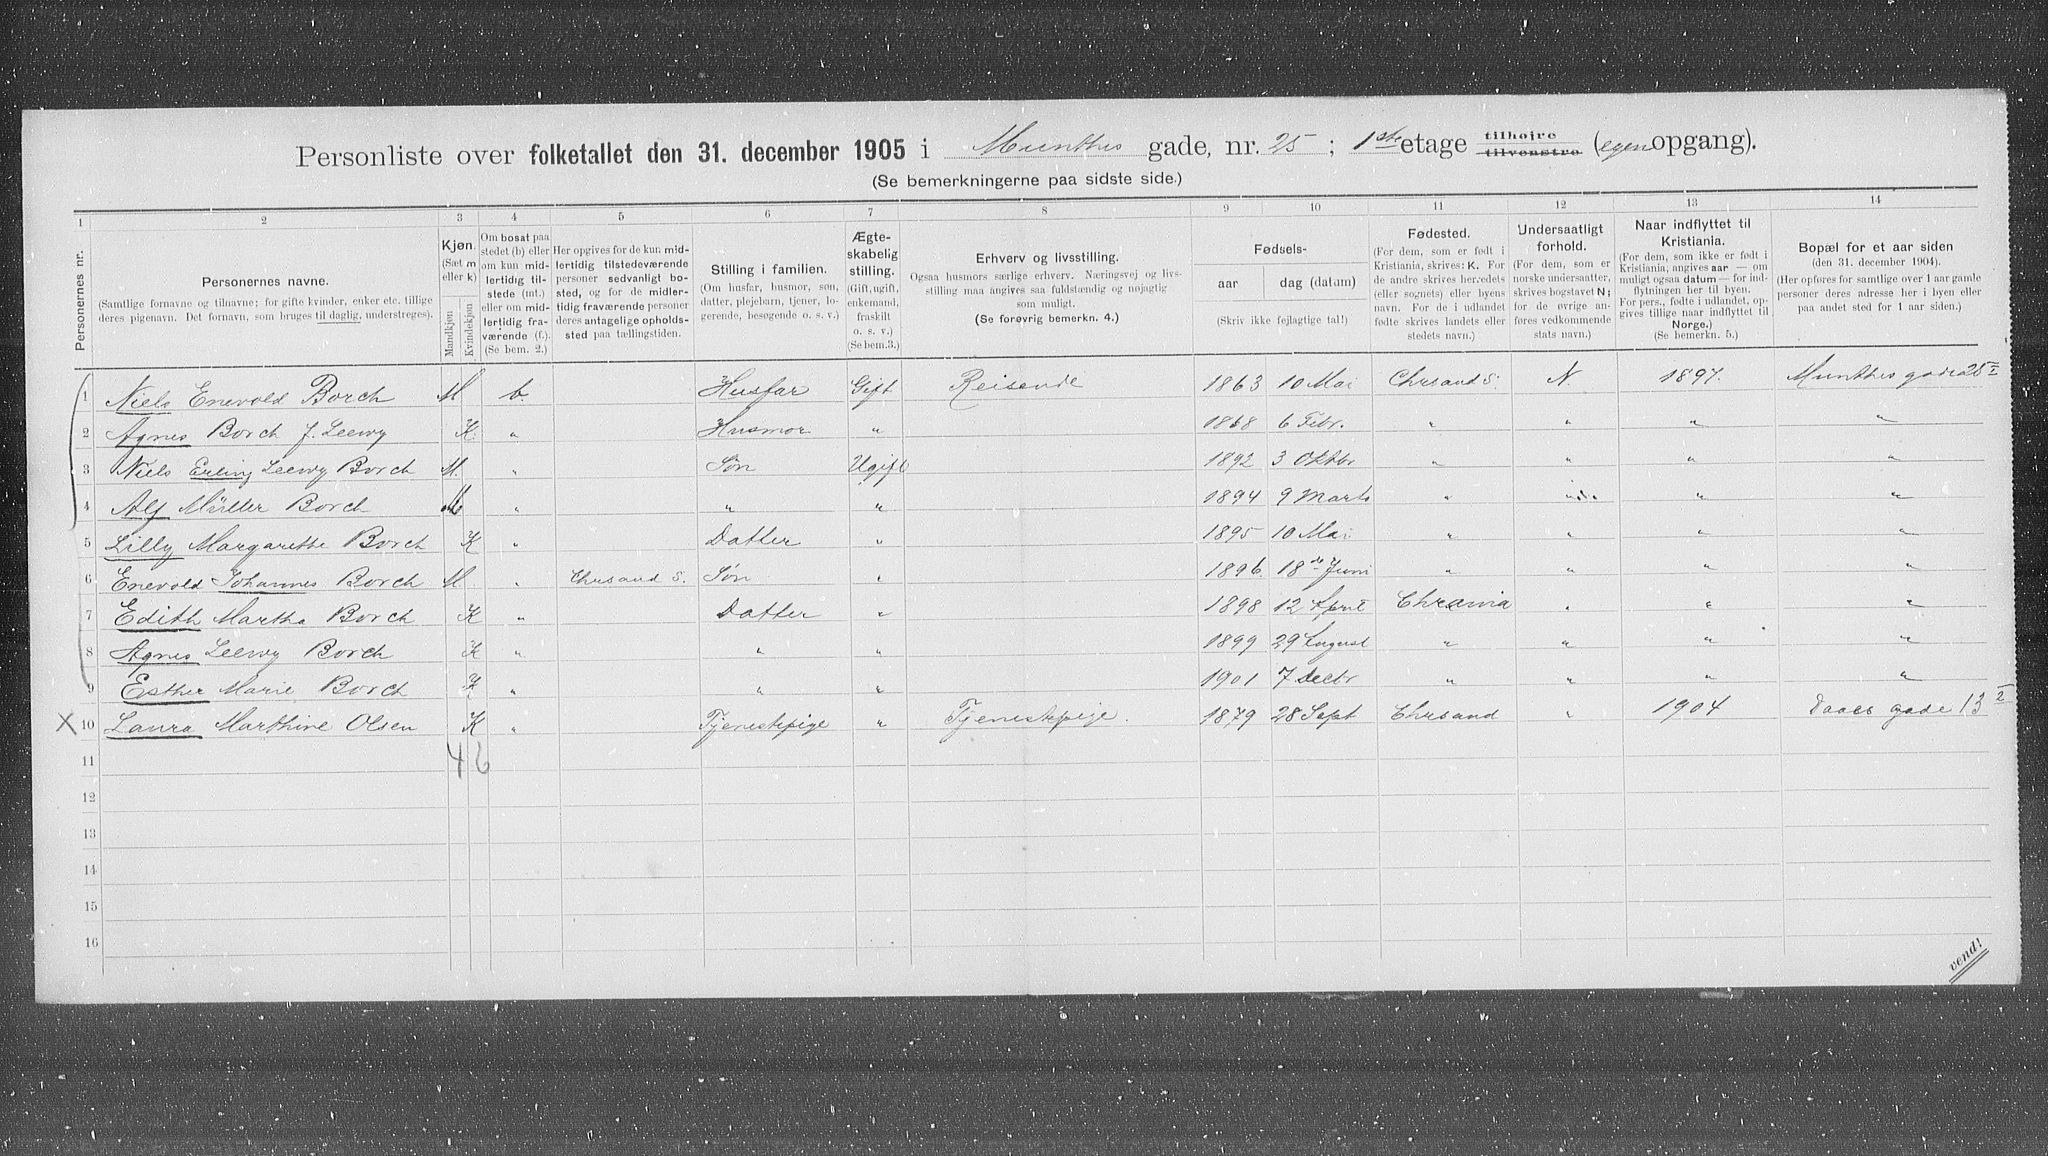 Personliste over folketallet den 31. december 1905 i Munthes gade, nr. 25 ; 1ste etage tilhøjre tilvenstre (egen opgang).
(Se bemerkningerne paa sidste side.)
1 2 3 4 5 6 7 8 9 10 11 12 13 14
Personernes nr.
Personernes navne.
(Samtlige fornavne og tilnavne; for gifte kvinder, enker etc. tillige
deres pigenavn. Det fornavn, som bruges til daglig, understreges).
Kjøn.
(Sæt m
eller k)
Mandkjøn
Kvindekjøn
Om bosat paa
stedet (b) eller
om kun mid-
lertidig til-
stede (mt.)
eller om mid-
lertidig fra-
værende (f.).
(Se bem. 2.)
Her opgives for de kun mid-
lertidig tilstedeværende
personer sedvanlig bo-
sted, og for de midler-
tidig fraværende personer
deres antagelige opholds-
sted paa tællingstiden.
Stilling i familien.
(Om husfar, husmor, søn,
datter, plejebarn, tjener, lo-
gerende, besøgende o. s. v.)
Ægte-
skabelig
stilling.
(Gift, ugift,
enkemand,
fraskilt
o. s. v.)
(Se bem.3.)
Erhverv og livsstilling.
Ogsaa husmors særlige erhverv. Næringsvej og livs-
stilling maa angives saa fuldstændig og nøjagtig
som muligt.
(Se forøvrig bemerkn. 4.)
Fødsels-
aar dag (datum)
(Skriv ikke fejlagtige tal!)
Fødested.
(For dem, som er født i
Kristiania, skrives: K. For
de andre skrives herredets
(eller sognets) eller byens
navn. For de i udlandet
fødte skrives landets eller
stedets navn.)
Undersaatligt
forhold.
(For dem, som er
norske undersaatter,
skrives bogstavet N;
for de øvrige an-
føres vedkommende
stats navn.)
Naar indflyttet til
Kristiania.
(For dem, som ikke er født i
Kristiania, angives aar — om
muligt ogsaa datum — for ind-
flytningen her til byen.
For pers., fødte i udlandet, op-
gives tillige naar indflyttet til
Norge.)
(Se bemerkn. 5.)
Bopæl for et aar siden
(den 31. december 1904).
(Her opføres for samtlige over 1 aar gamle
personer deres adresse her i byen eller
paa andet sted for 1 aar siden.)
1 Niels Enevold Borch M b. Husfar Gift Reisende 1863 10 Mai Chrsand S. N. 1897. Munthes gade 25 I
2 Agnes Borch f. Leewy K. " Husmor " 1868 6 Febr. " " " "
3 Niels Erling Leewy Borch M. " Søn Ugift 1892 3 Oktbr " " " "
4 Alf Müller Borch M " " " 1894 9 Marts " " "
5 Lilly Margarethe Borch K " Datter " 1895 10 Mai " " " "
6 Enevold Johannes Borch M. " Chrsand S. Søn " 1896. 18de Juni " " " "
7 Edith Martha Borch K " Datter " 1898 12 April Chrania " " "
8 Agnes Leewy Borch K " " " 1899 29 August " " " "
9 Esther Marie Borch K " " " 1901 7 Decbr " " " "
X 10 Laura Marthine Olsen K " Tjenestpige " Tjenestpige. 1879 28 Sept Chrsand " 1904 Daaes gade 13 I
11 4 6
12
13
14
15
16
vend!